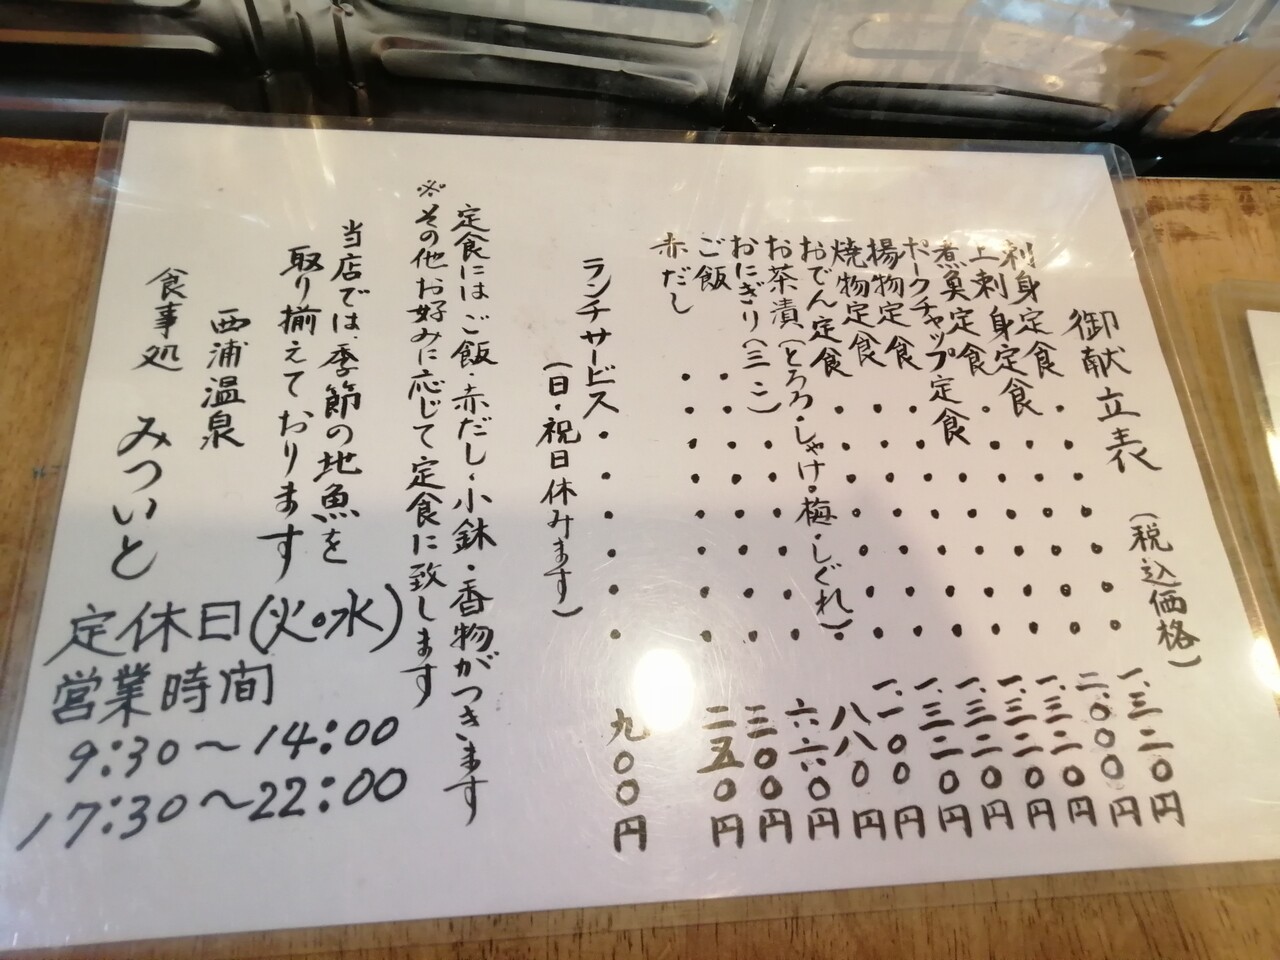 御献立表 (税込価格)
刺身定食・・・・・・・一、三二〇円
上刺身定食・・・・・・二、〇〇〇円
煮魚定食・・・・・・・一、三二〇円
ポークチャップ定食・・・・・一、三二〇円
揚物定食・・・・・・・一、三二〇円
焼物定食・・・・・・・一、三二〇円
おでん定食・・・・・・・一、一〇〇円
お茶漬(とろろ・しゃけ・梅・しぐれ)・八八〇円
おにぎり(三こ)・・・・・・六六〇円
ご飯・・・・・・・・三〇〇円
赤だし・・・・・・・・二五〇円
ランチサービス・・・・・・九〇〇円
(日・祝日休みます)
定食にはご飯・赤だし・小鉢・香物がつきます
※その他お好みに応じて定食に致します
当店では、季節の地魚を
取り揃えております
西浦温泉
食事処 みついと
定休日(火。水)
営業時間
9:30〜14:00
17:30〜22:00